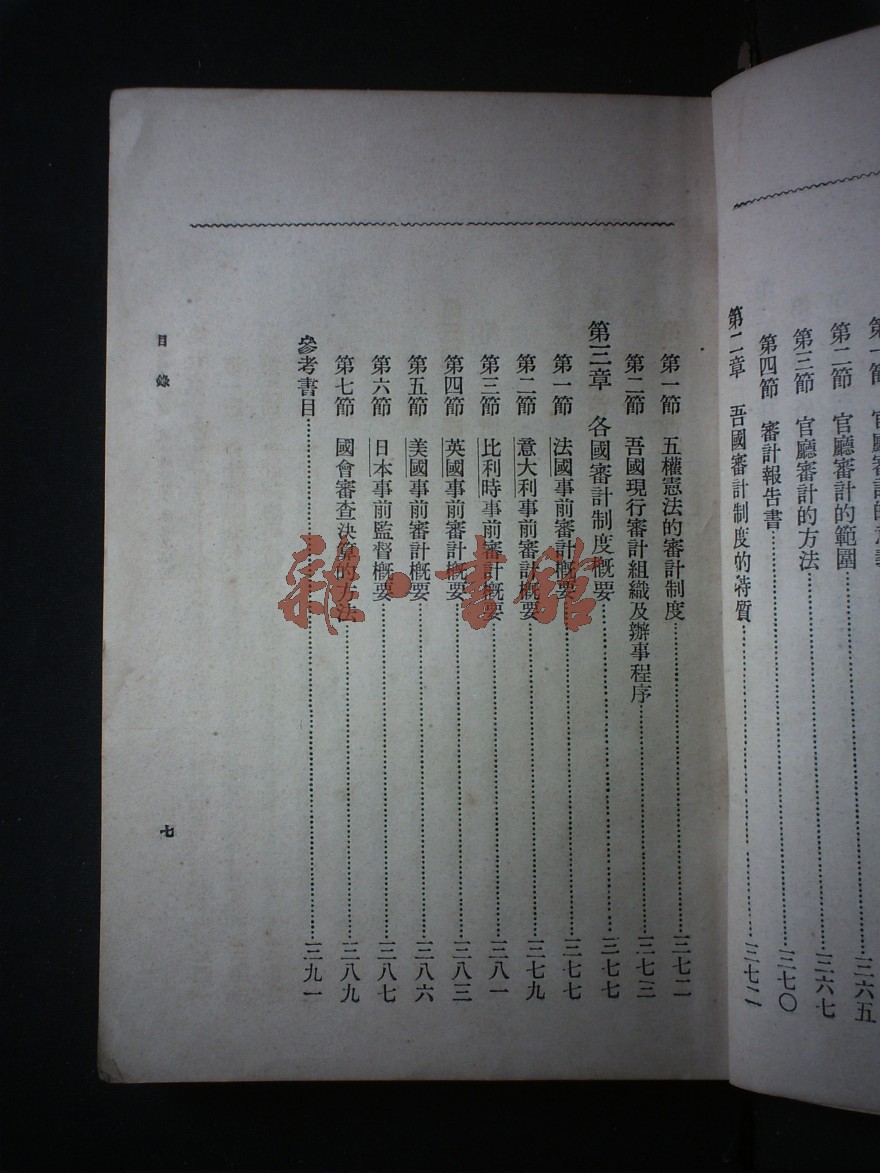 第二節 官廳審計的範圍……三六五
第三節 官廳審計的方法……三六七
第四節 審計報告書……三七〇
第二章 吾國審計制度的特質……三七二
第一節 五權憲法的審計制度……三七二
第二節 吾國現行審計組織及辦事程序……三七三
第三章 各國審計制度概要……三七七
第一節 法國事前審計概要……三七七
第二節 意大利事前審計概要……三七九
第三節 比利時事前審計概要……三八一
第四節 英國事前審計概要……三八三
第五節 美國事前審計概要……三八六
第六節 日本事前監督概要……三八七
第七節 國會審查決算的方法……三八九
參考書目……三九一
目錄
七
雜·書館